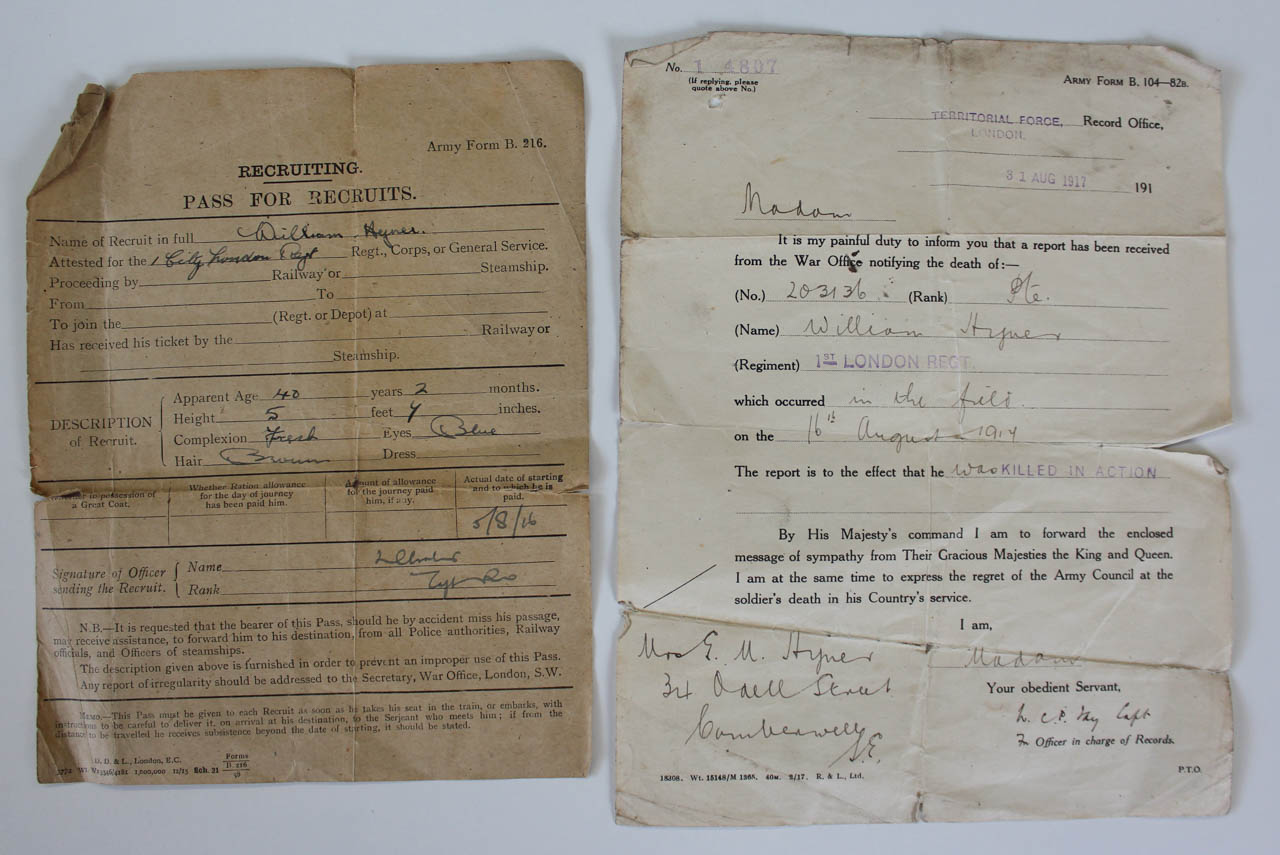 Army Form B. 216.
RECRUITING.
PASS FOR RECRUITS.
Name of Recruit in full William Hyner.
Attested for the 1 City London Regt Regt., Corps, or General Service.
Proceeding by Railway or Steamship.
From To
To join the (Regt. or Depot) at
Has received his ticket by the Railway or
Steamship.
DESCRIPTION of Recruit.
Apparent Age 40 years 2 months.
Height 5 feet 4 inches.
Complexion Fresh Eyes Blue
Hair Brown Dress
Whether in possession of a Great Coat.
Whether Ration allowance for the day of journey has been paid him.
Amount of allowance for the journey paid him, if any.
Actual date of starting and to which he is paid.
5/8/16
Signature of Officer sending the Recruit.
Name
Rank
N.B.—It is requested that the bearer of this Pass, should he by accident miss his passage,
may receive assistance, to forward him to his destination, from all Police authorities, Railway
officials, and Officers of steamships.
The description given above is furnished in order to prevent an improper use of this Pass.
Any report of irregularity should be addressed to the Secretary, War Office, London, S.W.
Memo.—This Pass must be given to each Recruit as soon as he takes his seat in the train, or embarks, with
instructions to be careful to deliver it, on arrival at his destination, to the Serjeant who meets him; if from the
distance to be travelled he receives subsistence beyond the date of starting, it should be stated.
D. D. & L., London, E.C.
1,500,000 12/15 Sch. 21
Forms
B. 216
No. 1 4807
(If replying, please
quote above No.)
Army Form B. 104—82B.
TERRITORIAL FORCE, Record Office,
LONDON.
31 AUG 1917 191
Madam
It is my painful duty to inform you that a report has been received
from the War Office notifying the death of:—
(No.) 203136 (Rank) Pte.
(Name) William Hyner
(Regiment) 1ST LONDON REGT.
which occurred in the field.
on the 16th August 1917
The report is to the effect that he was KILLED IN ACTION
By His Majesty's command I am to forward the enclosed
message of sympathy from Their Gracious Majesties the King and Queen.
I am at the same time to express the regret of the Army Council at the
soldier's death in his Country's service.
I am,
Madam
Your obedient Servant,
Capt
Officer in charge of Records.
Mrs E. M. Hyner
34 Odell Street
Camberwell
S.E.
18308. Wt. 15148/M 1365. 40M. 2/17. R. & L., Ltd.
P.T.O.